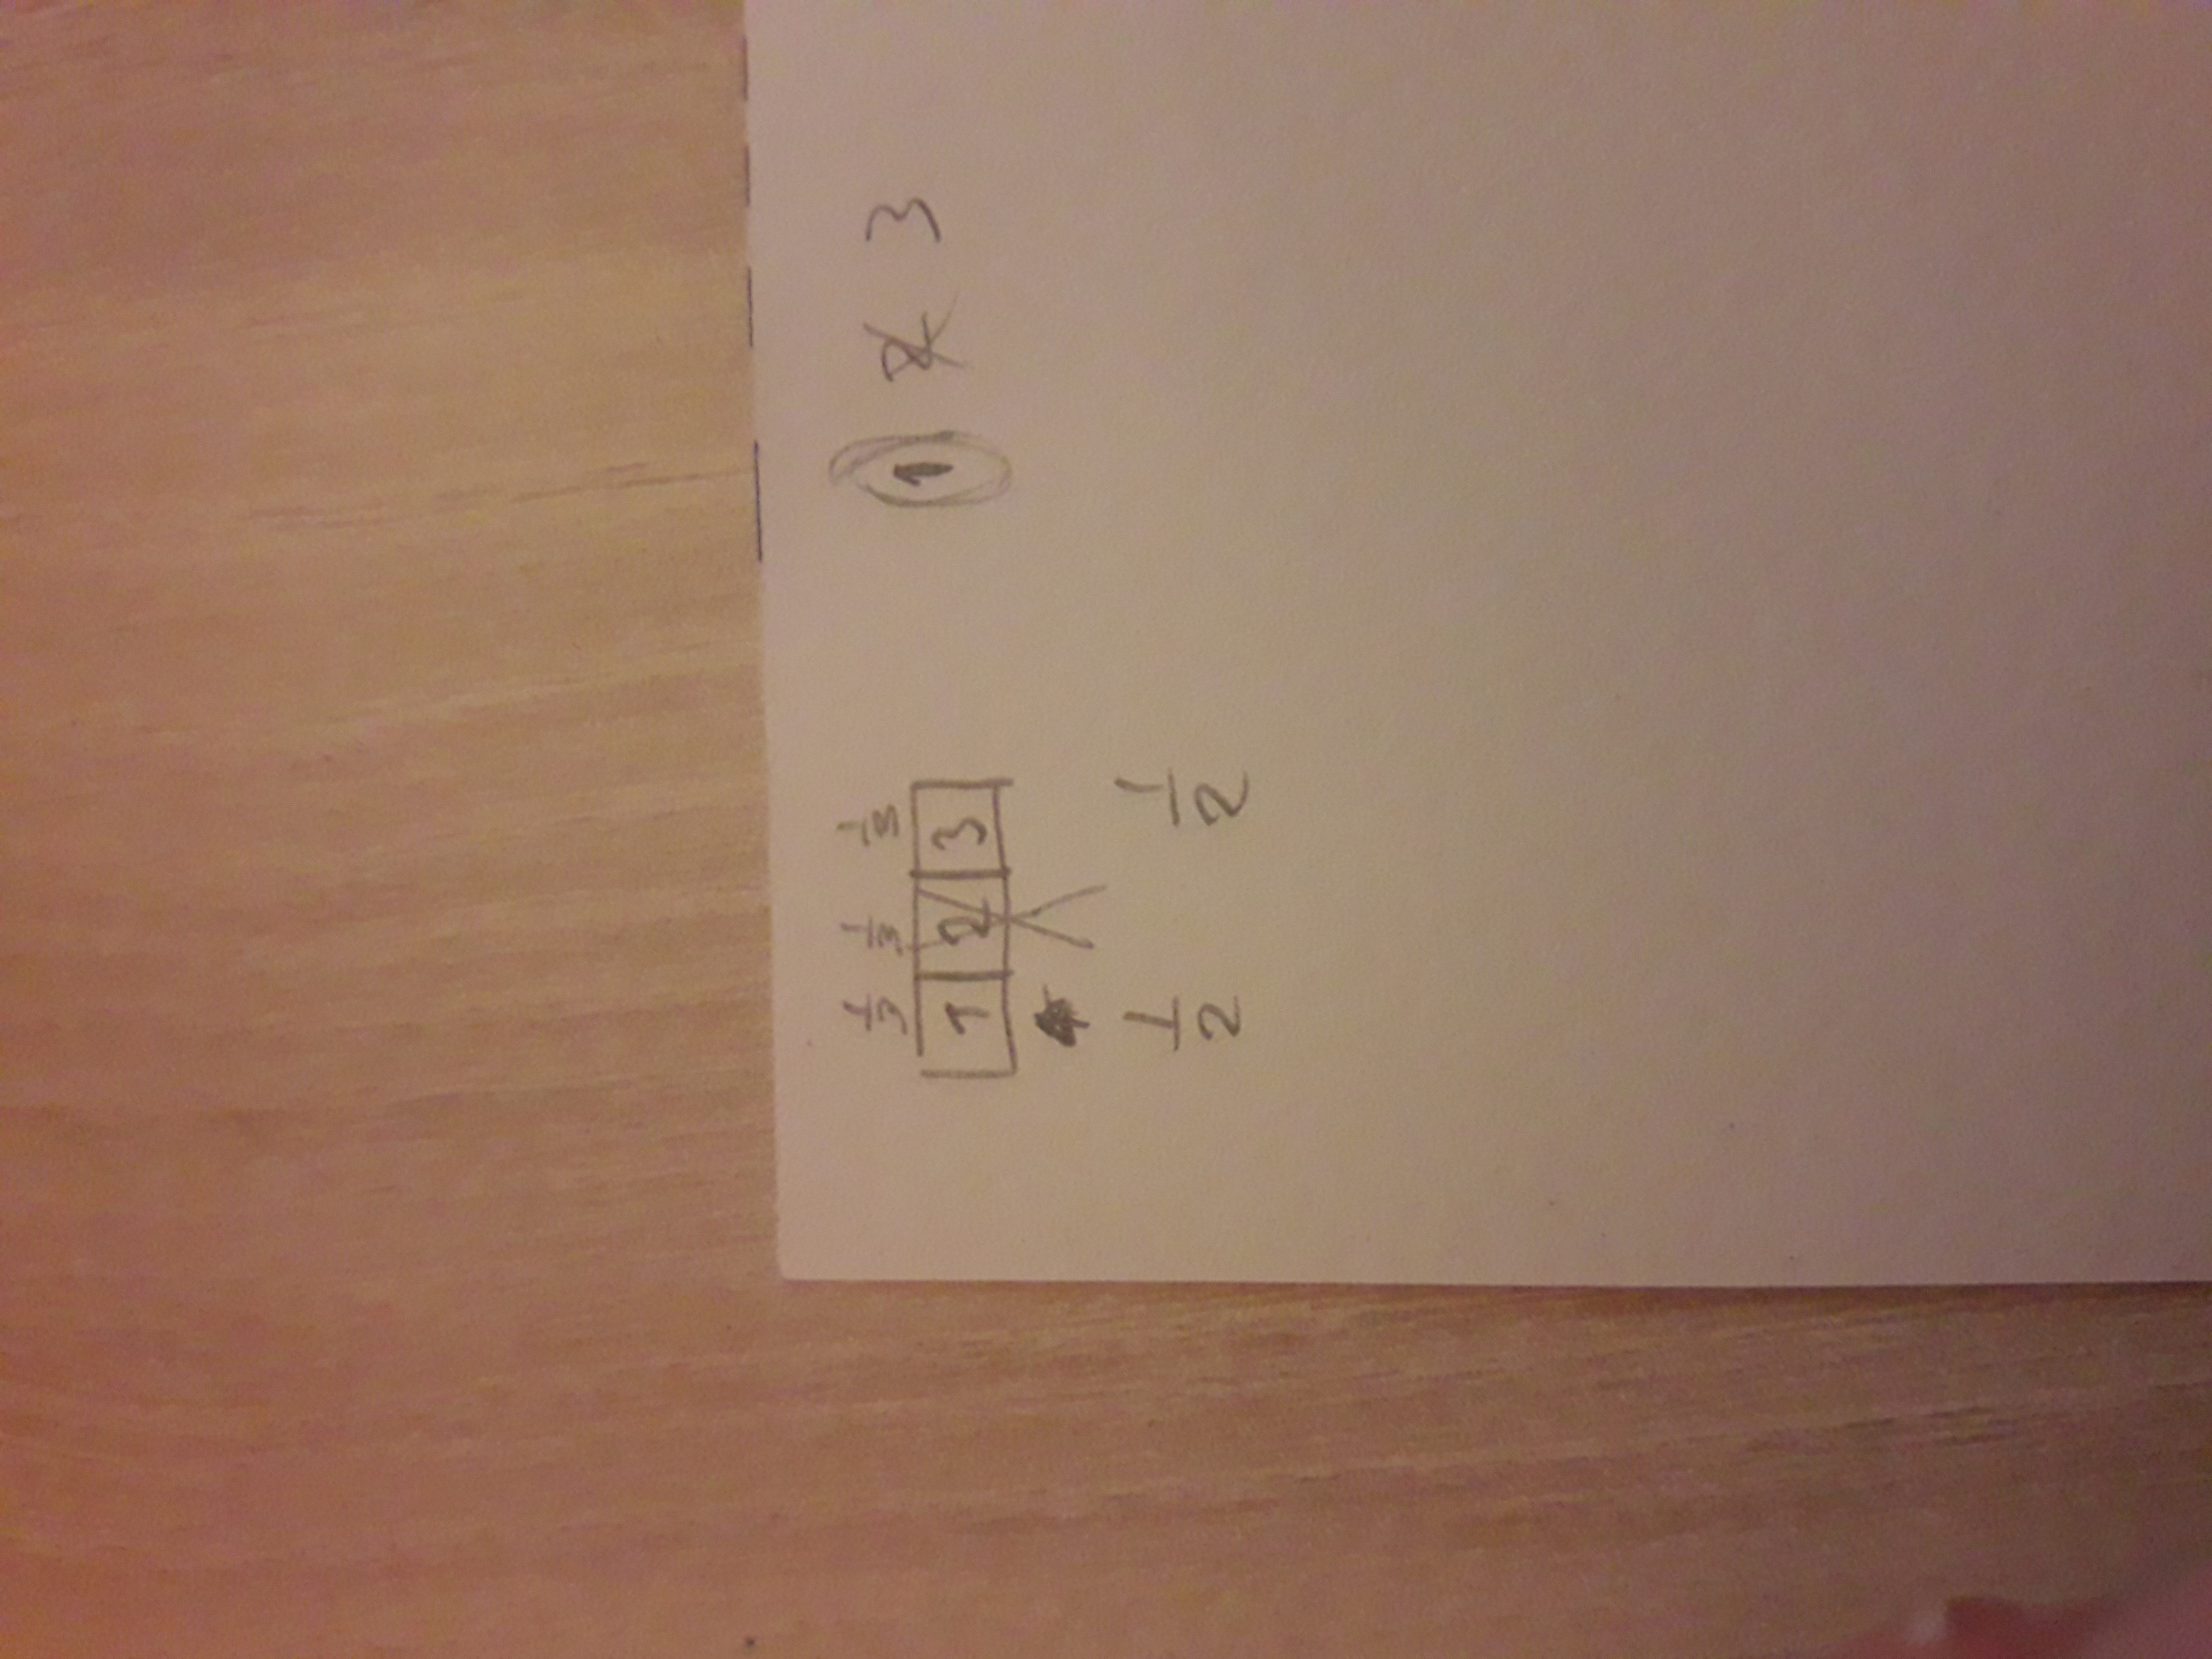 1/3 1/3 1/3
1 2 3
1/2 1/2
1 2 3